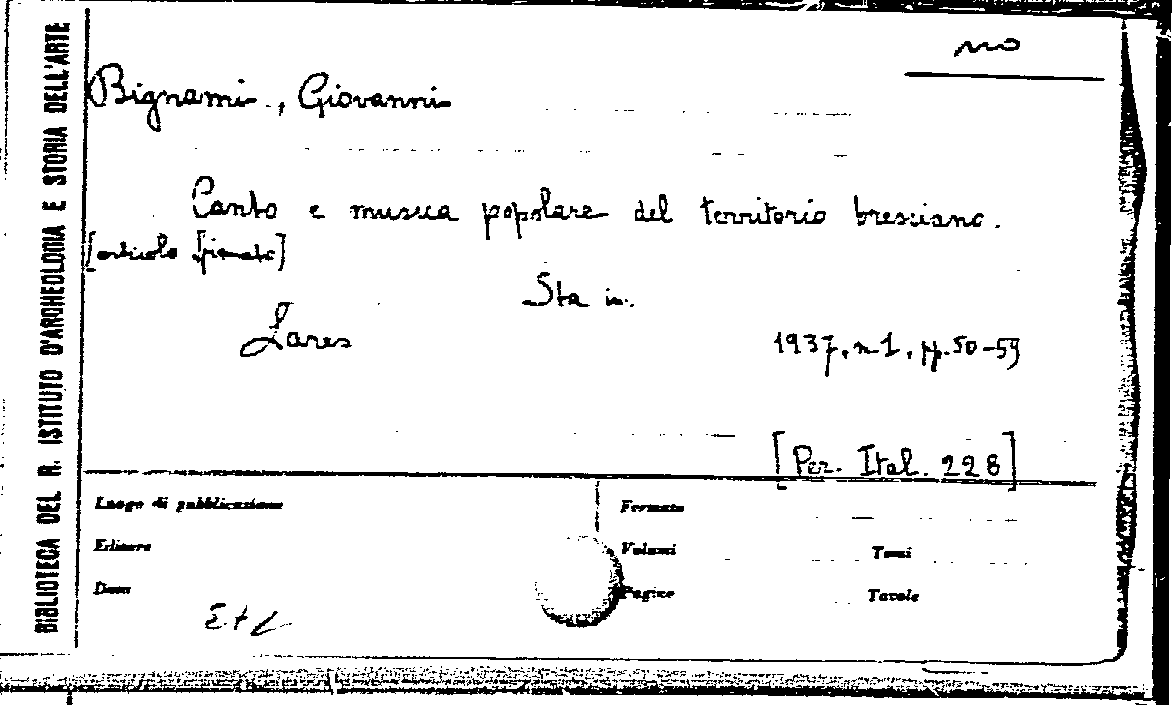 no
Bignami, Giovanni
Canto e musica popolare del territorio bresciano.
[articolo firmato]
Sta in.
Lares
1937, n. 1, pp. 50-59
[Per. Ital. 228]
Luogo di pubblicazione
Formato
Editore
Volumi Tomi
Data
Pagine Tavole
BIBLIOTECA DEL R. ISTITUTO D'ARCHEOLOGIA E STORIA DELL'ARTE